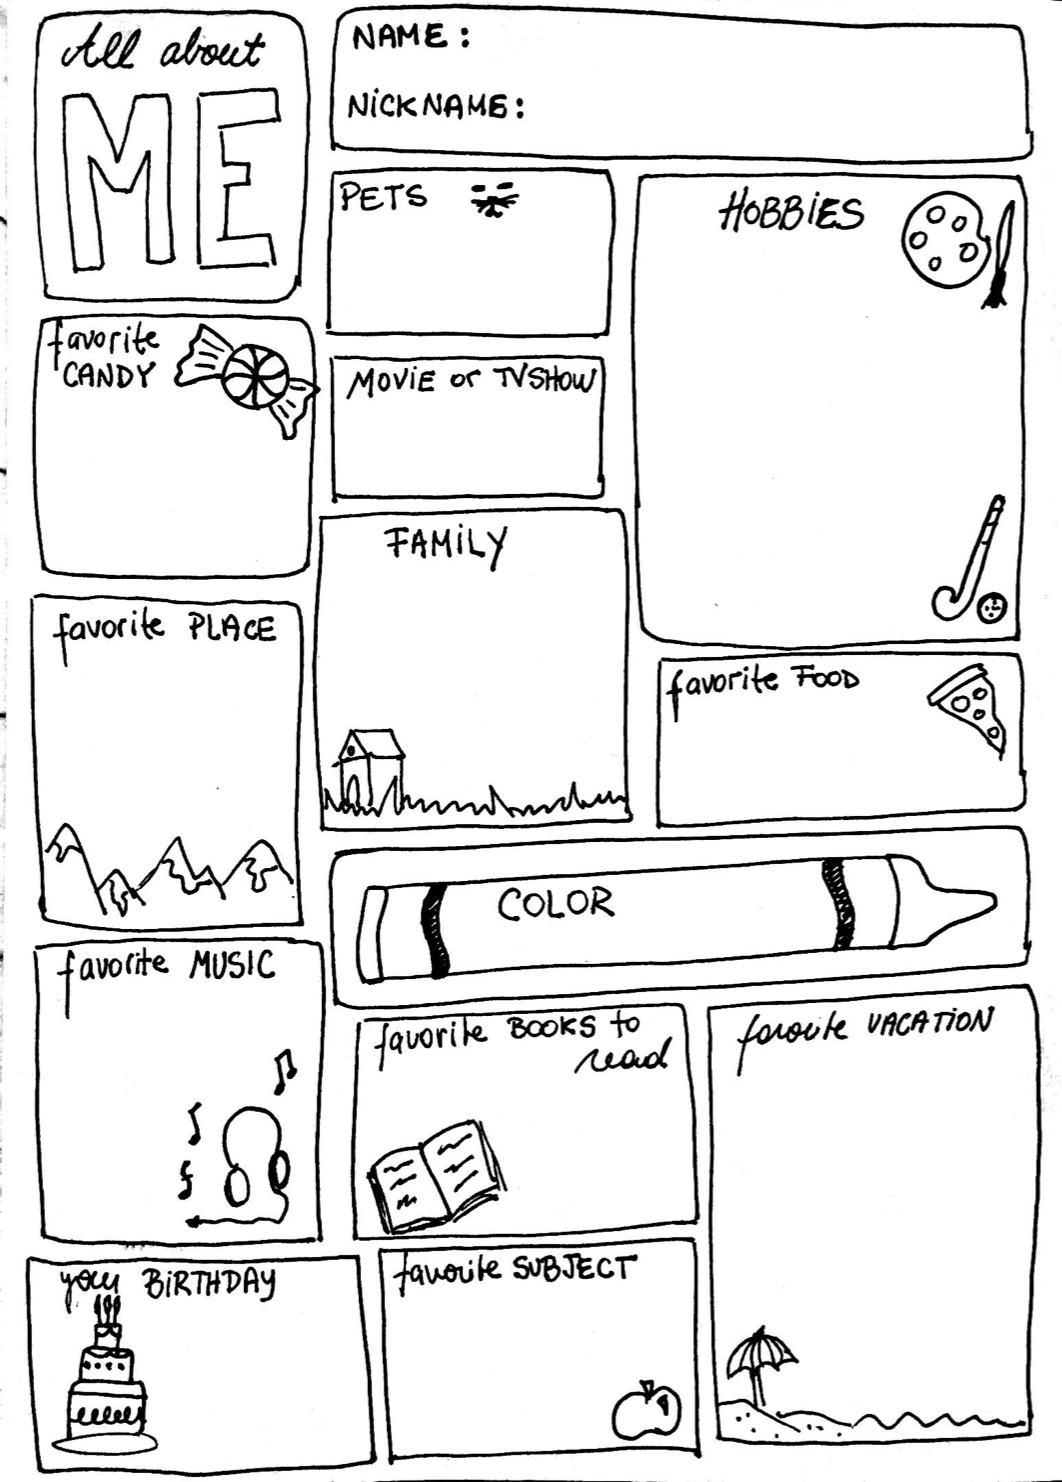 All about
ME
NAME :
NiCKNAME:
PETS
HOBBiES
favorite
CANDY
MOViE or TVSHOW
FAMiLY
favorite PLACE
favorite FOOD
COLOR
favorite MUSIC
favorite BOOKS to
read
favorite VACATION
your BiRTHDAY
favorite SUBJECT